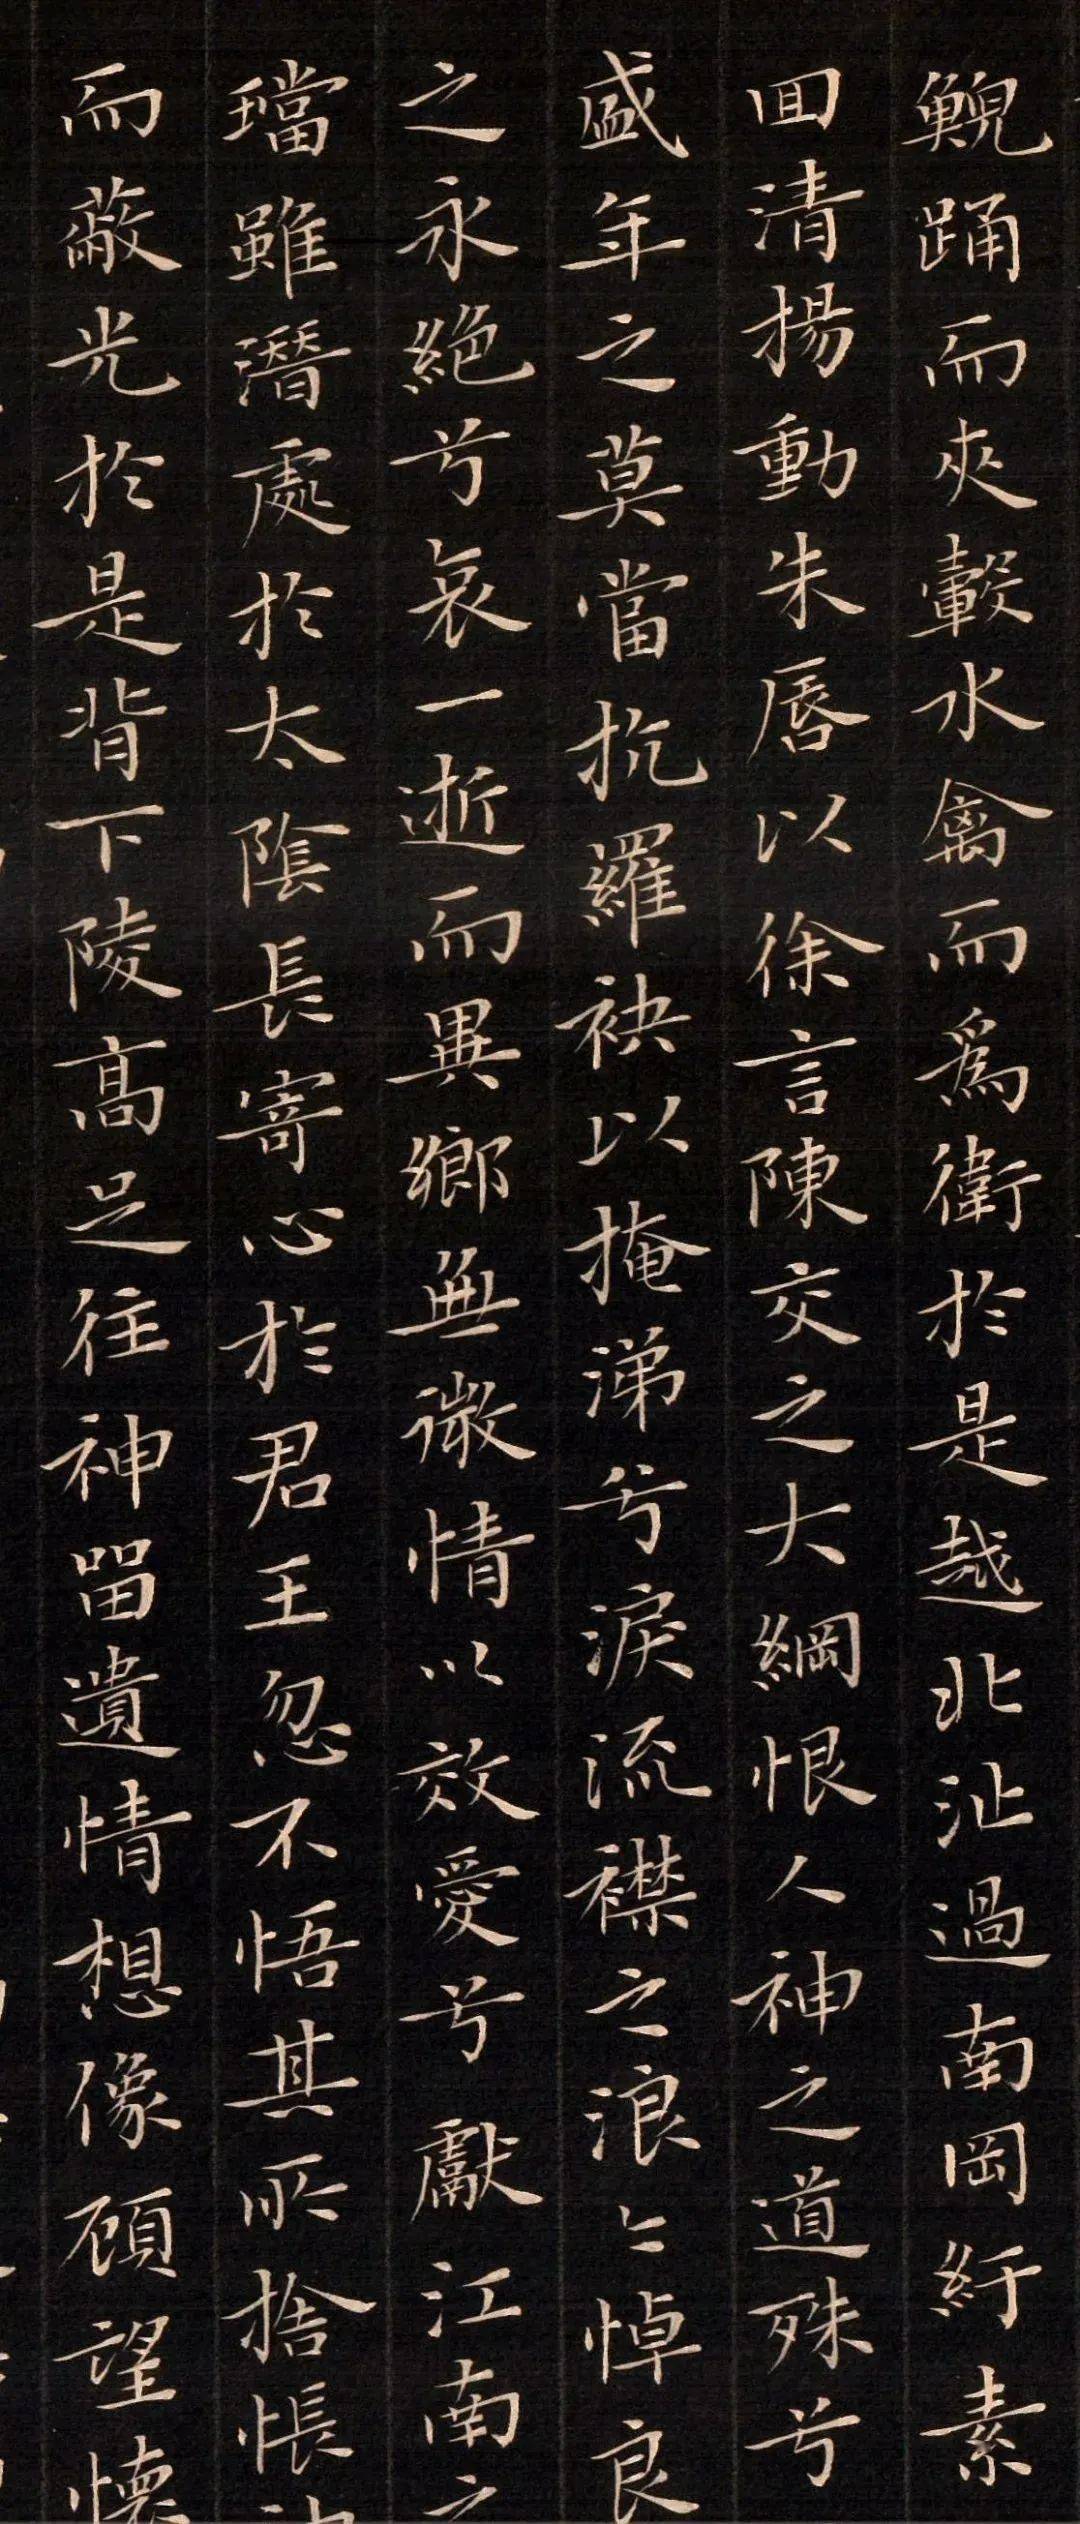 鯢踊而夾轂水禽而為衛於是越北沚過南岡紆素
回清揚動朱唇以徐言陳交之大綱恨人神之道殊兮
盛年之莫當抗羅袂以掩涕兮淚流襟之浪〻悼良
之永絕兮哀一逝而異鄉無微情以效愛兮獻江南之
璫雖潛處於太陰長寄心於君王忽不悟其所捨悵神
而蔽光於是背下陵高足往神留遺情想像顧望懷